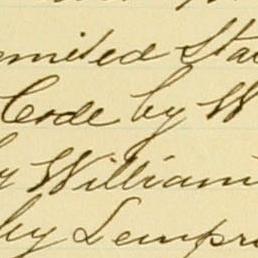 mited Sta
Code by W
y William
by Lempr